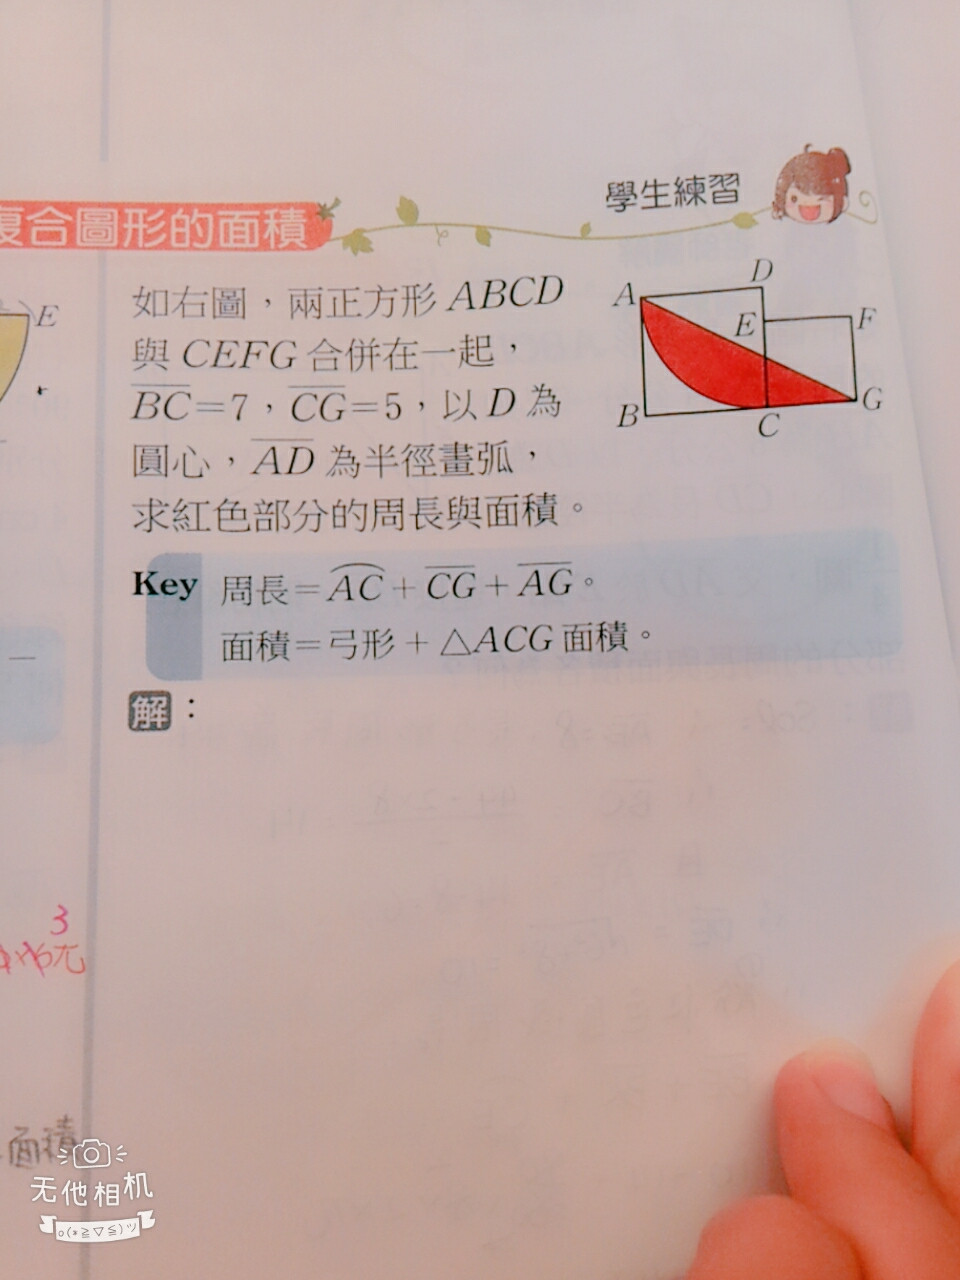 學生練習
复合圖形的面積
如右圖，兩正方形 ABCD
與 CEFG 合併在一起，
BC=7，CG=5，以 D 為
圓心，AD 為半徑畫弧，
求紅色部分的周長與面積。
A
D
E
F
B
C
G
E
Key 周長=AC+CG+AG。
面積=弓形+△ACG 面積。
解：
3
面積
无他相机
o(*≧▽≦)ツ